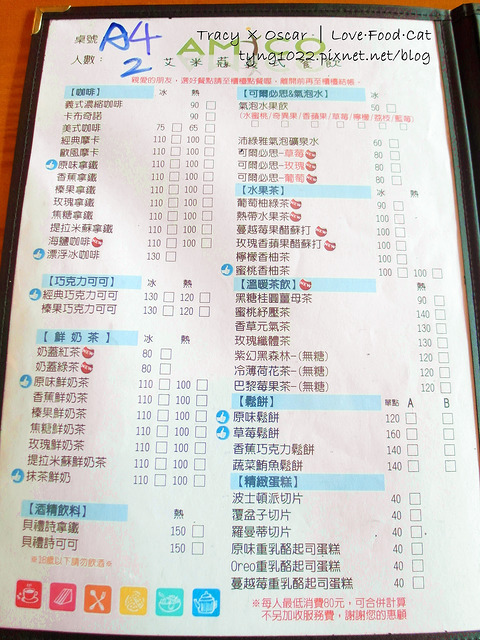 桌號 A4
人數： 2
AMICO
艾米蔻義式餐飲
Tracy X Oscar | Love·Food·Cat
tyng1022.pixnet.net/blog
親愛的朋友，選好餐點請至櫃檯點餐喔，離開前再至櫃檯結帳。
【咖啡】 冰 熱
義式濃縮咖啡 90
卡布奇諾 90
美式咖啡 75 65
經典摩卡 110 100
歐風摩卡 110 100
原味拿鐵 110 100
香蕉拿鐵 110 100
榛果拿鐵 110 100
玫瑰拿鐵 110 100
焦糖拿鐵 110 100
提拉米蘇拿鐵 110 100
海鹽咖啡 NEW 110 100
漂浮冰咖啡 130
【巧克力可可】 冰 熱
經典巧克力可可 130 120
榛果巧克力可可 130 120
【鮮奶茶】 冰 熱
奶蓋紅茶 NEW 80
奶蓋綠茶 NEW 80
原味鮮奶茶 110 100
香蕉鮮奶茶 110 100
榛果鮮奶茶 110 100
焦糖鮮奶茶 110 100
玫瑰鮮奶茶 110 100
提拉米蘇鮮奶茶 110 100
抹茶鮮奶 110 100
【酒精飲料】 熱
貝禮詩拿鐵 150
貝禮詩可可 150
※18歲以下請勿飲酒※
【可爾必思&氣泡水】 冰
氣泡水果飲 50
(水蜜桃/奇異果/香蘋果/草莓/檸檬/荔枝/藍莓)
沛綠雅氣泡礦泉水 60
可爾必思-草莓 NEW 80
可爾必思-玫瑰 NEW 80
可爾必思-葡萄 NEW 80
【水果茶】 冰 熱
葡萄柚綠茶 NEW 90
熱帶水果茶 NEW 100
蔓越莓果醋蘇打 NEW 100
玫瑰香蘋果醋蘇打 NEW 100
檸檬香柚茶 100
蜜桃香柚茶 100 100
【溫暖茶飲】 NEW 熱
黑糖桂圓薑母茶 90
蜜桃紓壓茶 140
香草元氣茶 130
玫瑰纖體茶 130
紫幻黑森林-(無糖) 120
冷薄荷花茶-(無糖) 120
巴黎莓果茶-(無糖) 120
【鬆餅】 單點 A B
原味鬆餅 120
草莓鬆餅 160
香蕉巧克力鬆餅 140
蔬菜鮪魚鬆餅 140
【精緻蛋糕】
波士頓派切片 40
覆盆子切片 40
羅曼蒂切片 40
原味重乳酪起司蛋糕 40
Oreo重乳酪起司蛋糕 40
蔓越莓重乳酪起司蛋糕 40
※每人最低消費80元，可合併計算
不另加收服務費，謝謝您的惠顧